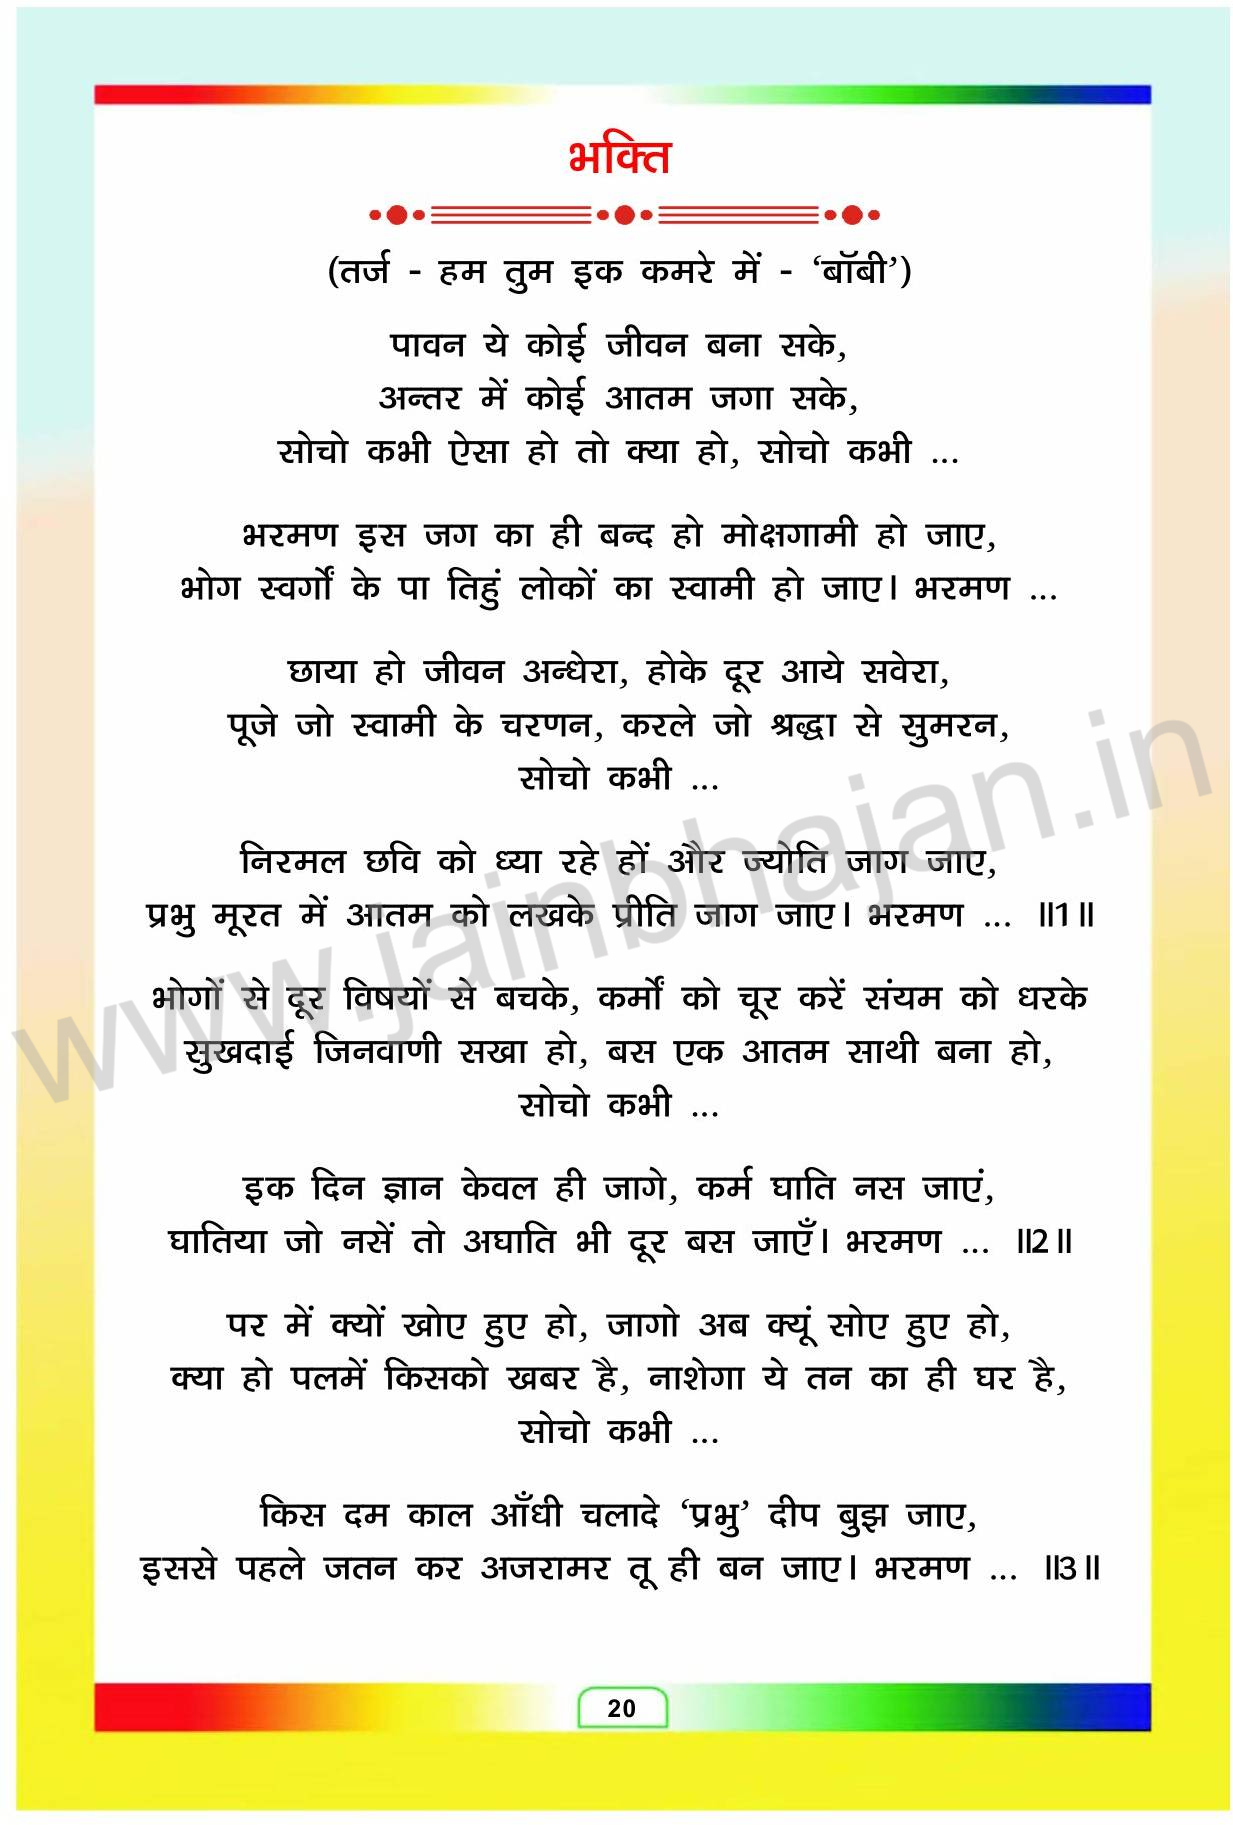 भक्ति
(तर्ज - हम तुम इक कमरे में - ‘बॉबी’)
पावन ये कोई जीवन बना सके,
अन्तर में कोई आतम जगा सके,
सोचो कभी ऐसा हो तो क्या हो, सोचो कभी ...
भरमण इस जग का ही बन्द हो मोक्षगामी हो जाए,
भोग स्वर्गों के पा तिहुं लोकों का स्वामी हो जाए। भरमण ...
छाया हो जीवन अन्धेरा, होके दूर आये सवेरा,
पूजे जो स्वामी के चरणन, करले जो श्रद्धा से सुमरन,
सोचो कभी ...
निरमल छवि को ध्या रहे हों और ज्योति जाग जाए,
प्रभु मूरत में आतम को लखके प्रीति जाग जाए। भरमण ... ॥1॥
भोगों से दूर विषयों से बचके, कर्मों को चूर करें संयम को धरके
सुखदाई जिनवाणी सखा हो, बस एक आतम साथी बना हो,
सोचो कभी ...
इक दिन ज्ञान केवल ही जागे, कर्म घाति नस जाएं,
घातिया जो नसें तो अघाति भी दूर बस जाएँ। भरमण ... ॥2॥
पर में क्यों खोए हुए हो, जागो अब क्यूं सोए हुए हो,
क्या हो पलमें किसको खबर है, नाशेगा ये तन का ही घर है,
सोचो कभी ...
किस दम काल आँधी चलादे ‘प्रभु’ दीप बुझ जाए,
इससे पहले जतन कर अजरामर तू ही बन जाए। भरमण ... ॥3॥
20
www.jainbhajan.in